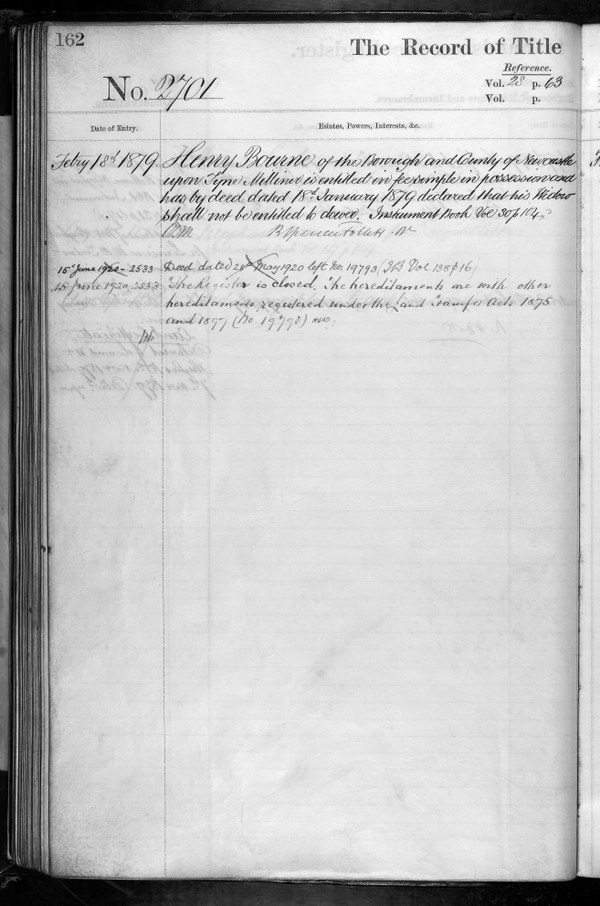 162
The Record of Title
Reference.
No. 2701
Vol. 28 p. 63
Vol. p.
Date of Entry.
Estates, Powers, Interests, &c.
Febry 18th 1879
Henry Bourne of the Borough and County of Newcastle
upon Tyne Milliner is entitled in fee simple in possession and
has by deed dated 18th January 1879 declared that his Widow
shall not be entitled to dower. Instrument Book Vol 30 p 104.
15th June 1920 - 2533
Deed dated May 1920 left No. 19793 (I B Vol 138 p 16)
15 June 1920 2533
The Register is closed. The hereditaments are with other
hereditaments registered under the Land Transfer Acts 1875
and 1897 (No 19792)